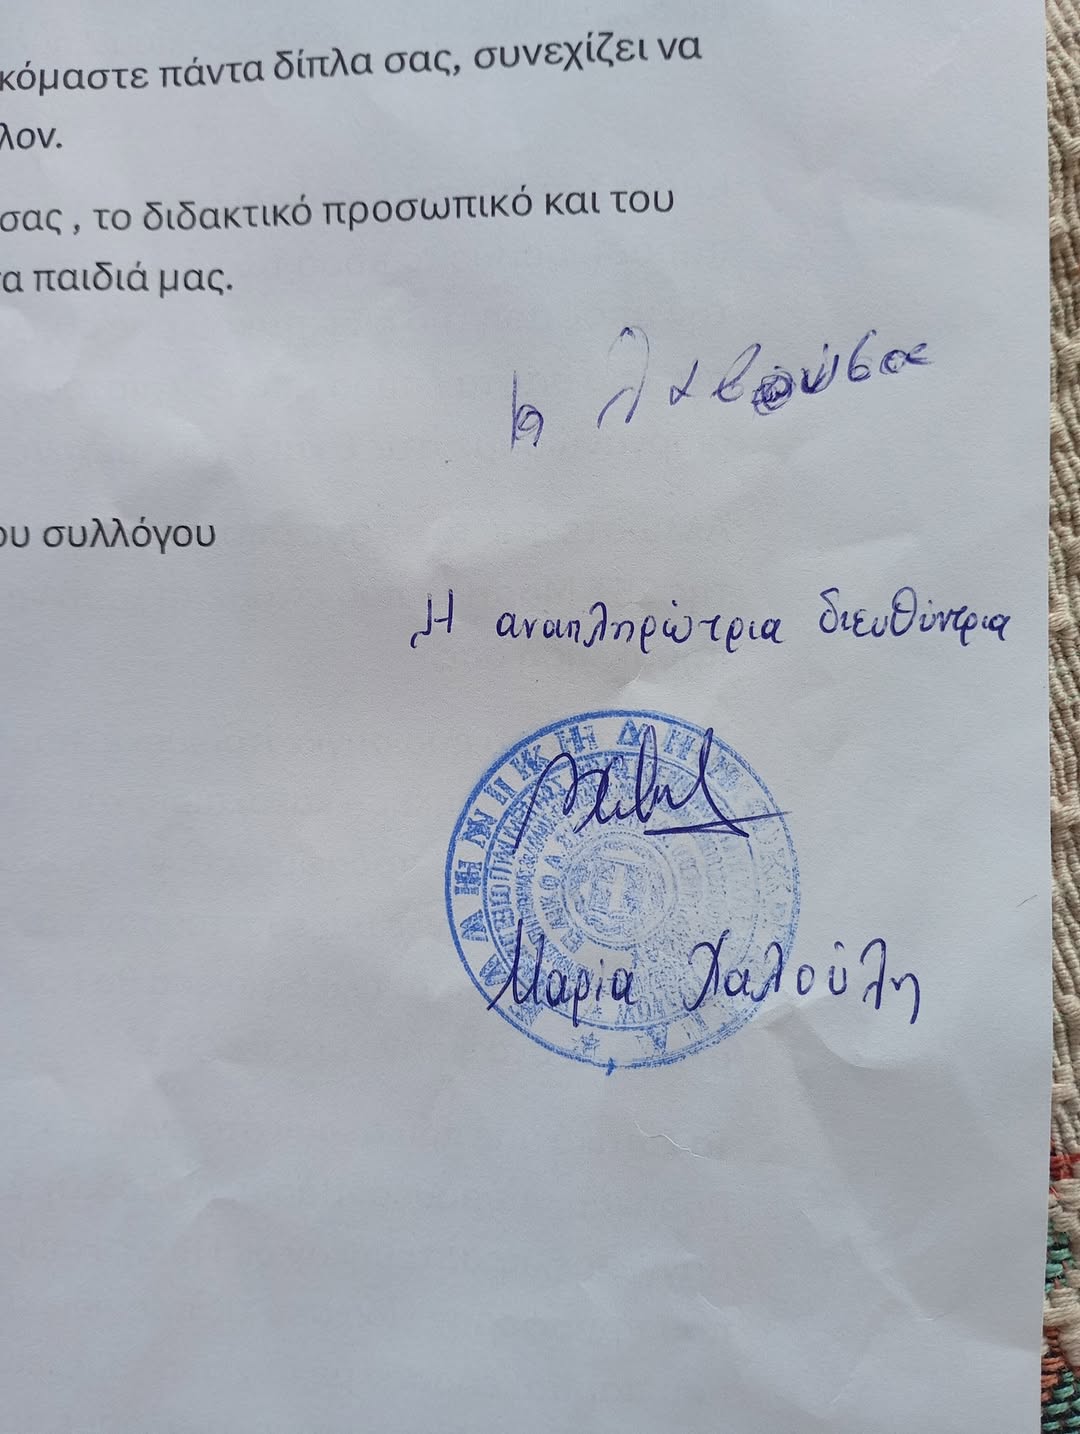 κόμαστε πάντα δίπλα σας, συνεχίζει να
λον.
σας , το διδακτικό προσωπικό και του
τα παιδιά μας.
η λαβούσα
ου συλλόγου
Η αναπληρώτρια διευθύντρια
ΕΛΛΗΝΙΚΗ ΔΗΜΟΚΡΑΤΙΑ
Μαρία Χαλούλη